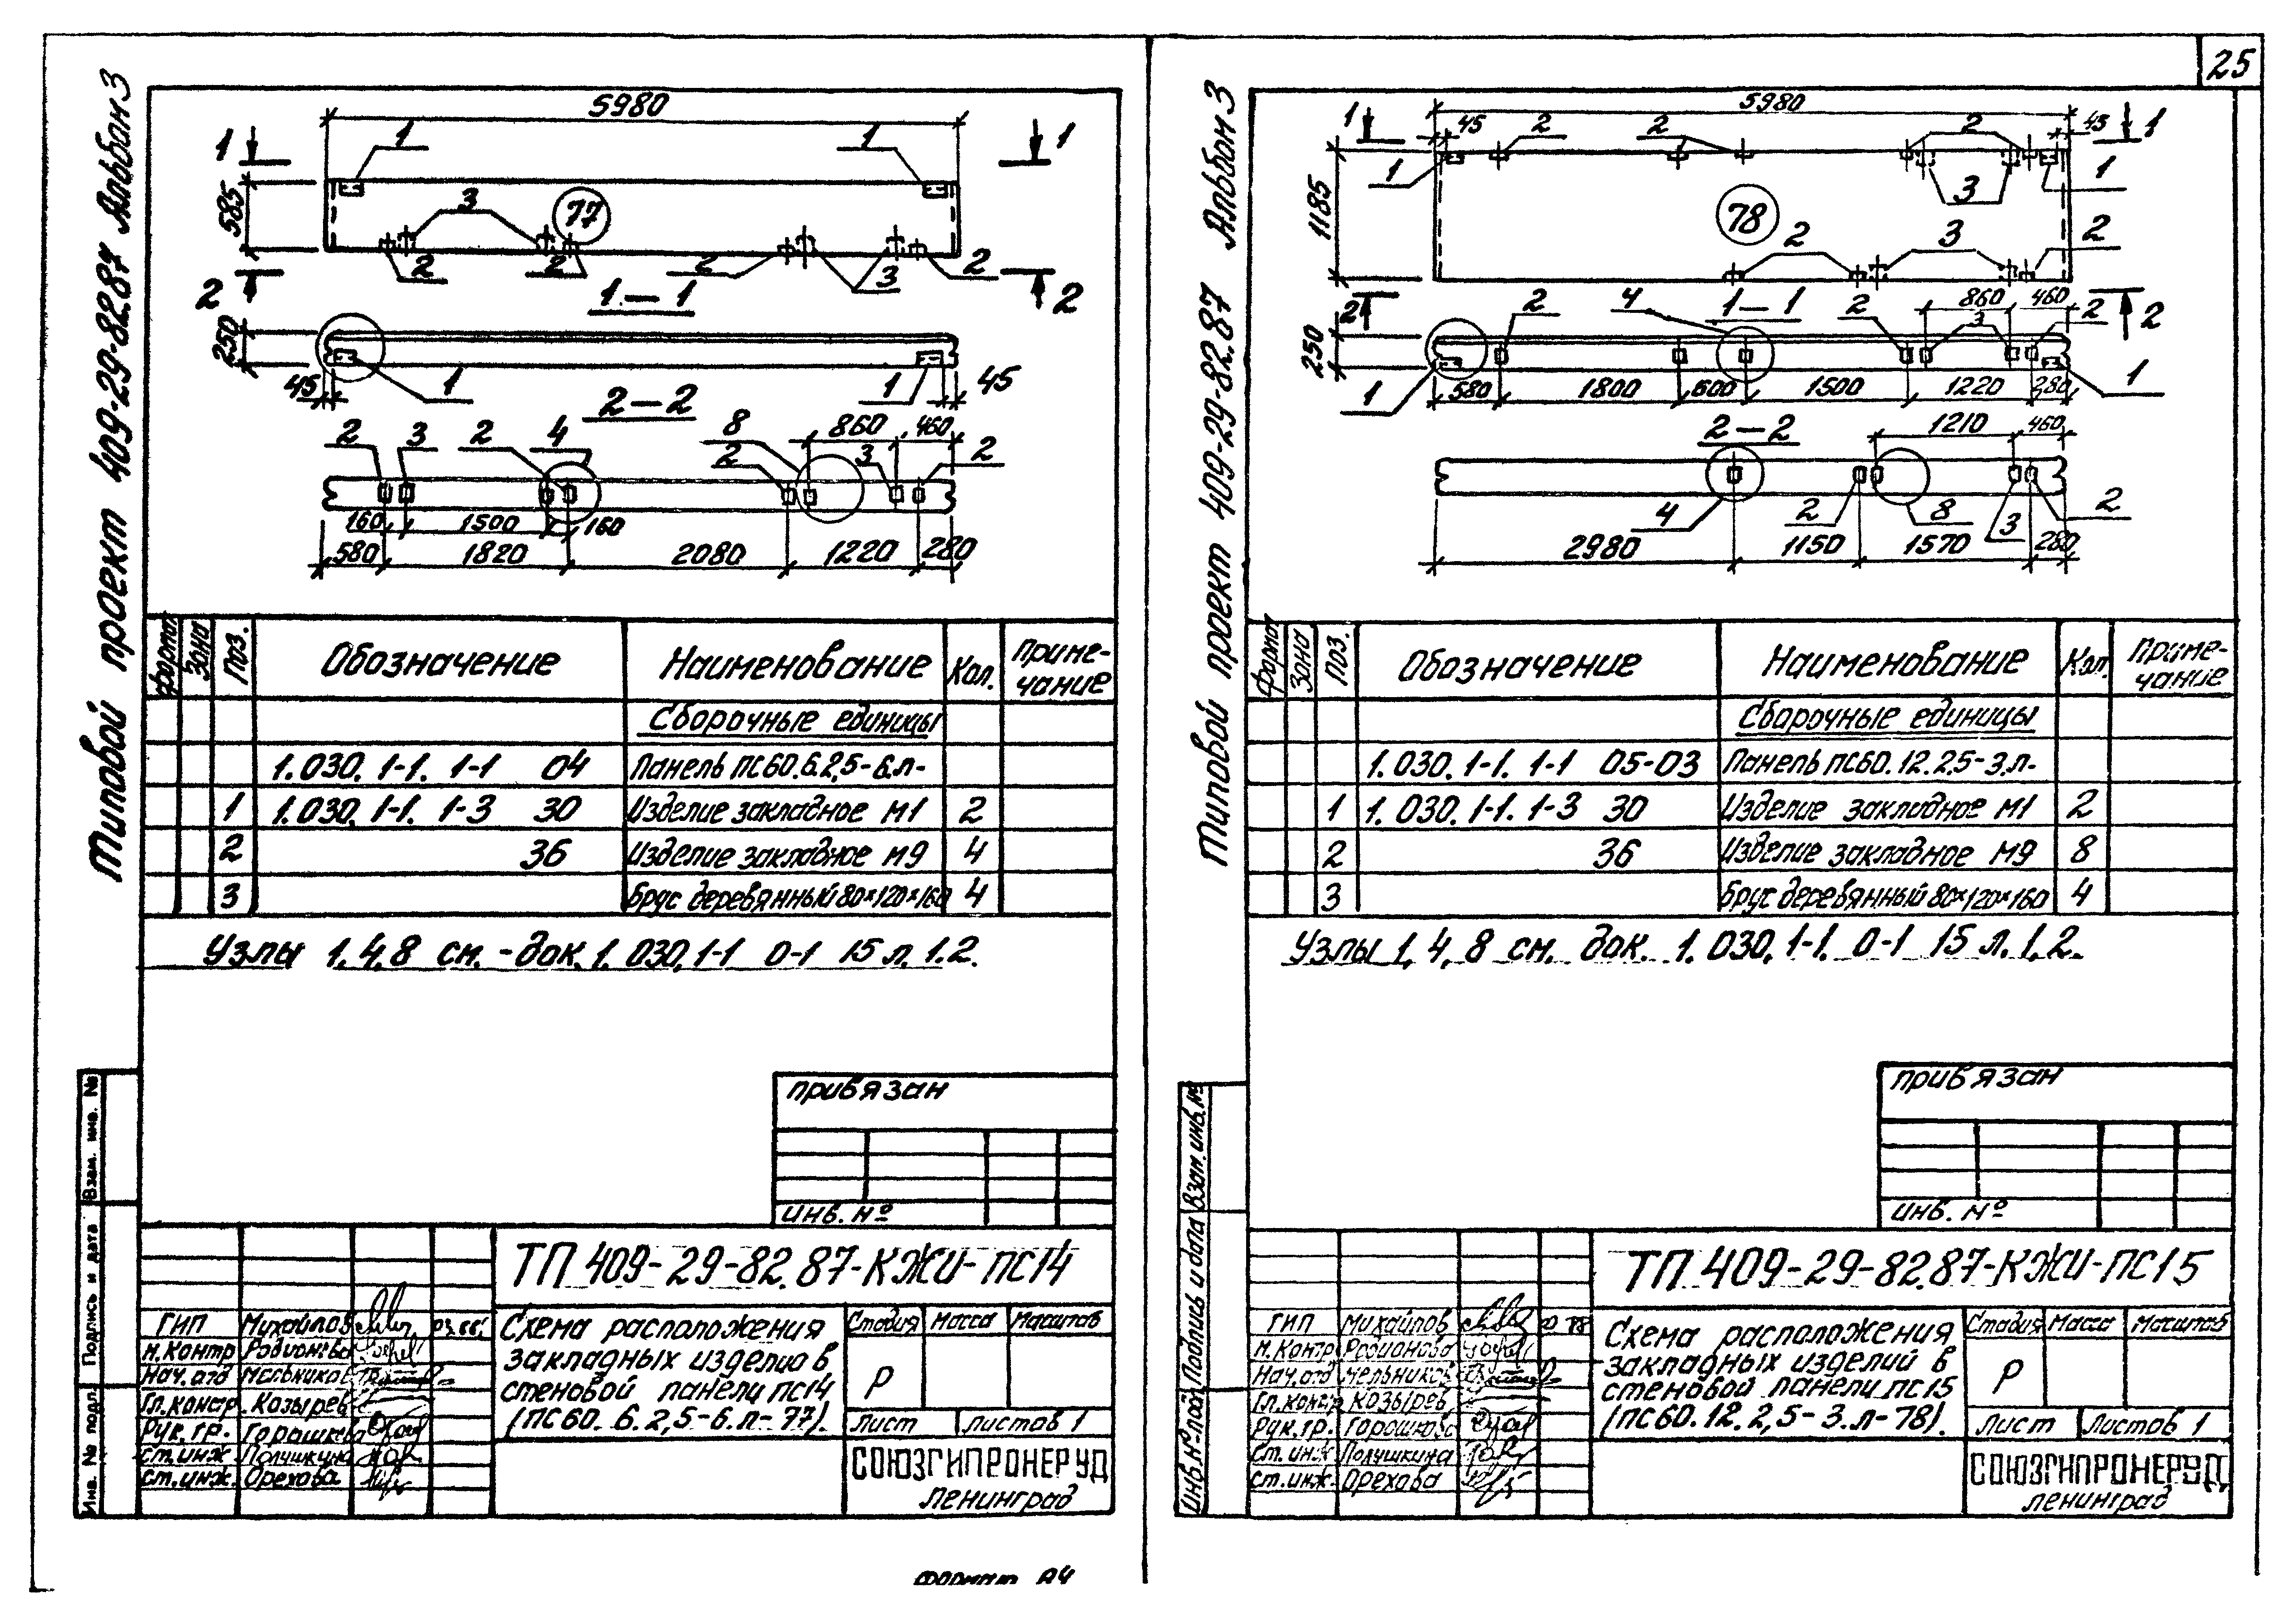 25
Типовой проект 409-29-82.87 Альбом 3
5980
1 1 1 1
585
3
77
2 2 2 3 2
2 2
1-1
250
45 1 1 45
2-2
2 3 2 4 8 860 460 2
2 3
160 1500 160
580 1820 2080 1220 280
формат Зона Поз. Обозначение Наименование Кол. Приме-
чание
Сборочные единицы
1.030.1-1. 1-1 04 Панель ПС60.6.2,5-6.л-
1 1.030.1-1. 1-3 30 Изделие закладное М1 2
2 36 Изделие закладное М9 4
3 Брус деревянный 80×120×160 4
Узлы 1,4,8 см. - док. 1.030.1-1 0-1 15 л. 1.2.
привязан
инв. №
Взам. инв. №
Подпись и дата
Инв. № подл.
ТП 409-29-82.87-КЖИ-ПС14
ГИП Михайлов
Н.контр Родионова
Нач.отд Мельников
Гл.констр. Козырев
Рук.гр. Горашкова
Ст.инж Полушкина
Ст.инж. Орехова
Схема расположения
закладных изделий в
стеновой панели ПС14
(ПС60.6.2,5-6.л-77).
Стадия Масса Масштаб
Р
Лист Листов 1
СОЮЗГИПРОНЕРУД
Ленинград
Формат А4
Типовой проект 409-29-82.87 Альбом 3
5980
1 45 2 2 2 45 1
1 3 1
1185
78
2 3 2
2 2
4 1-1 860 460
2 2 3 2
250
1 580 1800 600 1500 1220 280 1
2-2
1210 460
4 2 8 3 2
2980 1150 1570 280
формат Зона Поз. Обозначение Наименование Кол. Приме-
чание
Сборочные единицы
1.030.1-1. 1-1 05-03 Панель ПС60.12.2,5-3.л-
1 1.030.1-1. 1-3 30 Изделие закладное М1 2
2 36 Изделие закладное М9 8
3 Брус деревянный 80×120×160 4
Узлы 1,4,8 см. док. 1.030.1-1. 0-1 15 л. 1,2.
привязан
инв. №
Взам. инв. №
Подпись и дата
Инв. № подл
ТП 409-29-82.87-КЖИ-ПС15
ГИП Михайлов
Н.контр Родионова
Нач.отд Мельников
Гл.констр Козырев
Рук.гр. Горашкова
Ст.инж Полушкина
Ст.инж. Орехова
Схема расположения
закладных изделий в
стеновой панели ПС15
(ПС60.12.2,5-3.л-78).
Стадия Масса Масштаб
Р
Лист Листов 1
СОЮЗГИПРОНЕРУД
Ленинград